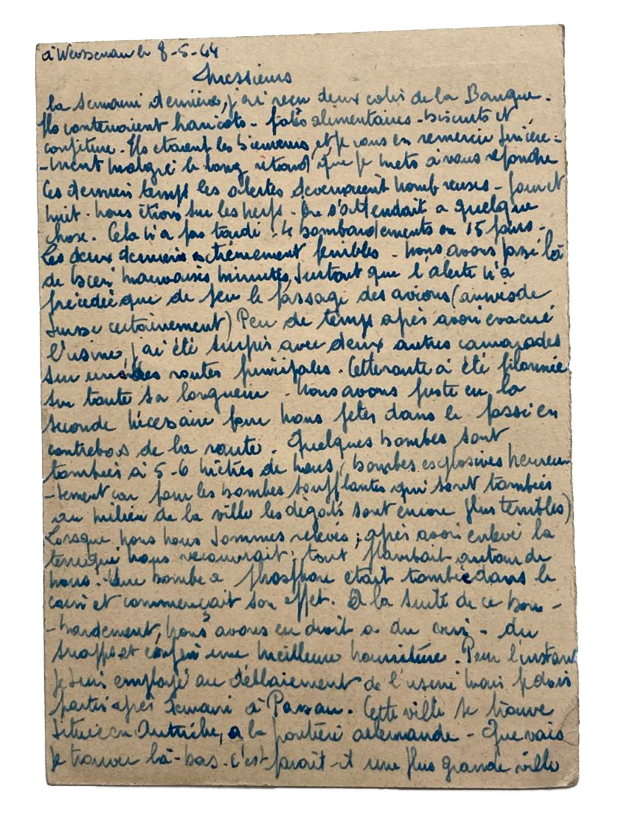 à Weissenau le 8-5-44
Messieurs
la semaine dernière, j'ai reçu deux colis de la Banque.
Ils contenaient haricots - pâtes alimentaires - biscuits et
confiture. Ils étaient les bienvenus et je vous en remercie sincère=
-ment malgré le long retard que je mets à vous répondre
Ces derniers temps les alertes devenaient nombreuses - jour et
nuit. nous étions sur les nerfs. On s'attendait a quelque
chose. Cela n'a pas tardé. 4 bombardements en 15 jours -
Les deux derniers extrêmement pénibles - nous avons passé là
de bien mauvaises minutes, surtout que l'alerte n'a
précédé que de peu le passage des avions (
Suisse certainement) Peu de temps après avoir évacué
l'usine, j'ai été surpris avec deux autres camarades
sur une des routes principales. Cette route a été pilonnée
sur toute sa longueur. nous avons juste eu la
seconde nécessaire pour nous jeter dans le fossé en
contrebas de la route. Quelques bombes sont
tombées à 5-6 mètres de nous (bombes explosives heureu-
-sement car pour les bombes soufflantes qui sont tombées
au milieu de la ville les dégats sont encore plus terribles)
Lorsque nous nous sommes relevés ; après avoir enlevé la
terre qui nous recouvrait, tout flambait autour de
nous. Une bombe a phosphore était tombée dans le
coin et commençait son effet. A la suite de ce bom-
-bardement, nous avons eu droit a du vin - du
snapps et enfin une meilleure nourriture. Pour l'instant
je suis employé au déblaiement de l'usine mais je dois
partir après semaine à Passau. Cette ville se trouve
située en Autriche, a la frontière allemande - Que vais
je trouver là-bas. c'est paraît-il une plus grande ville